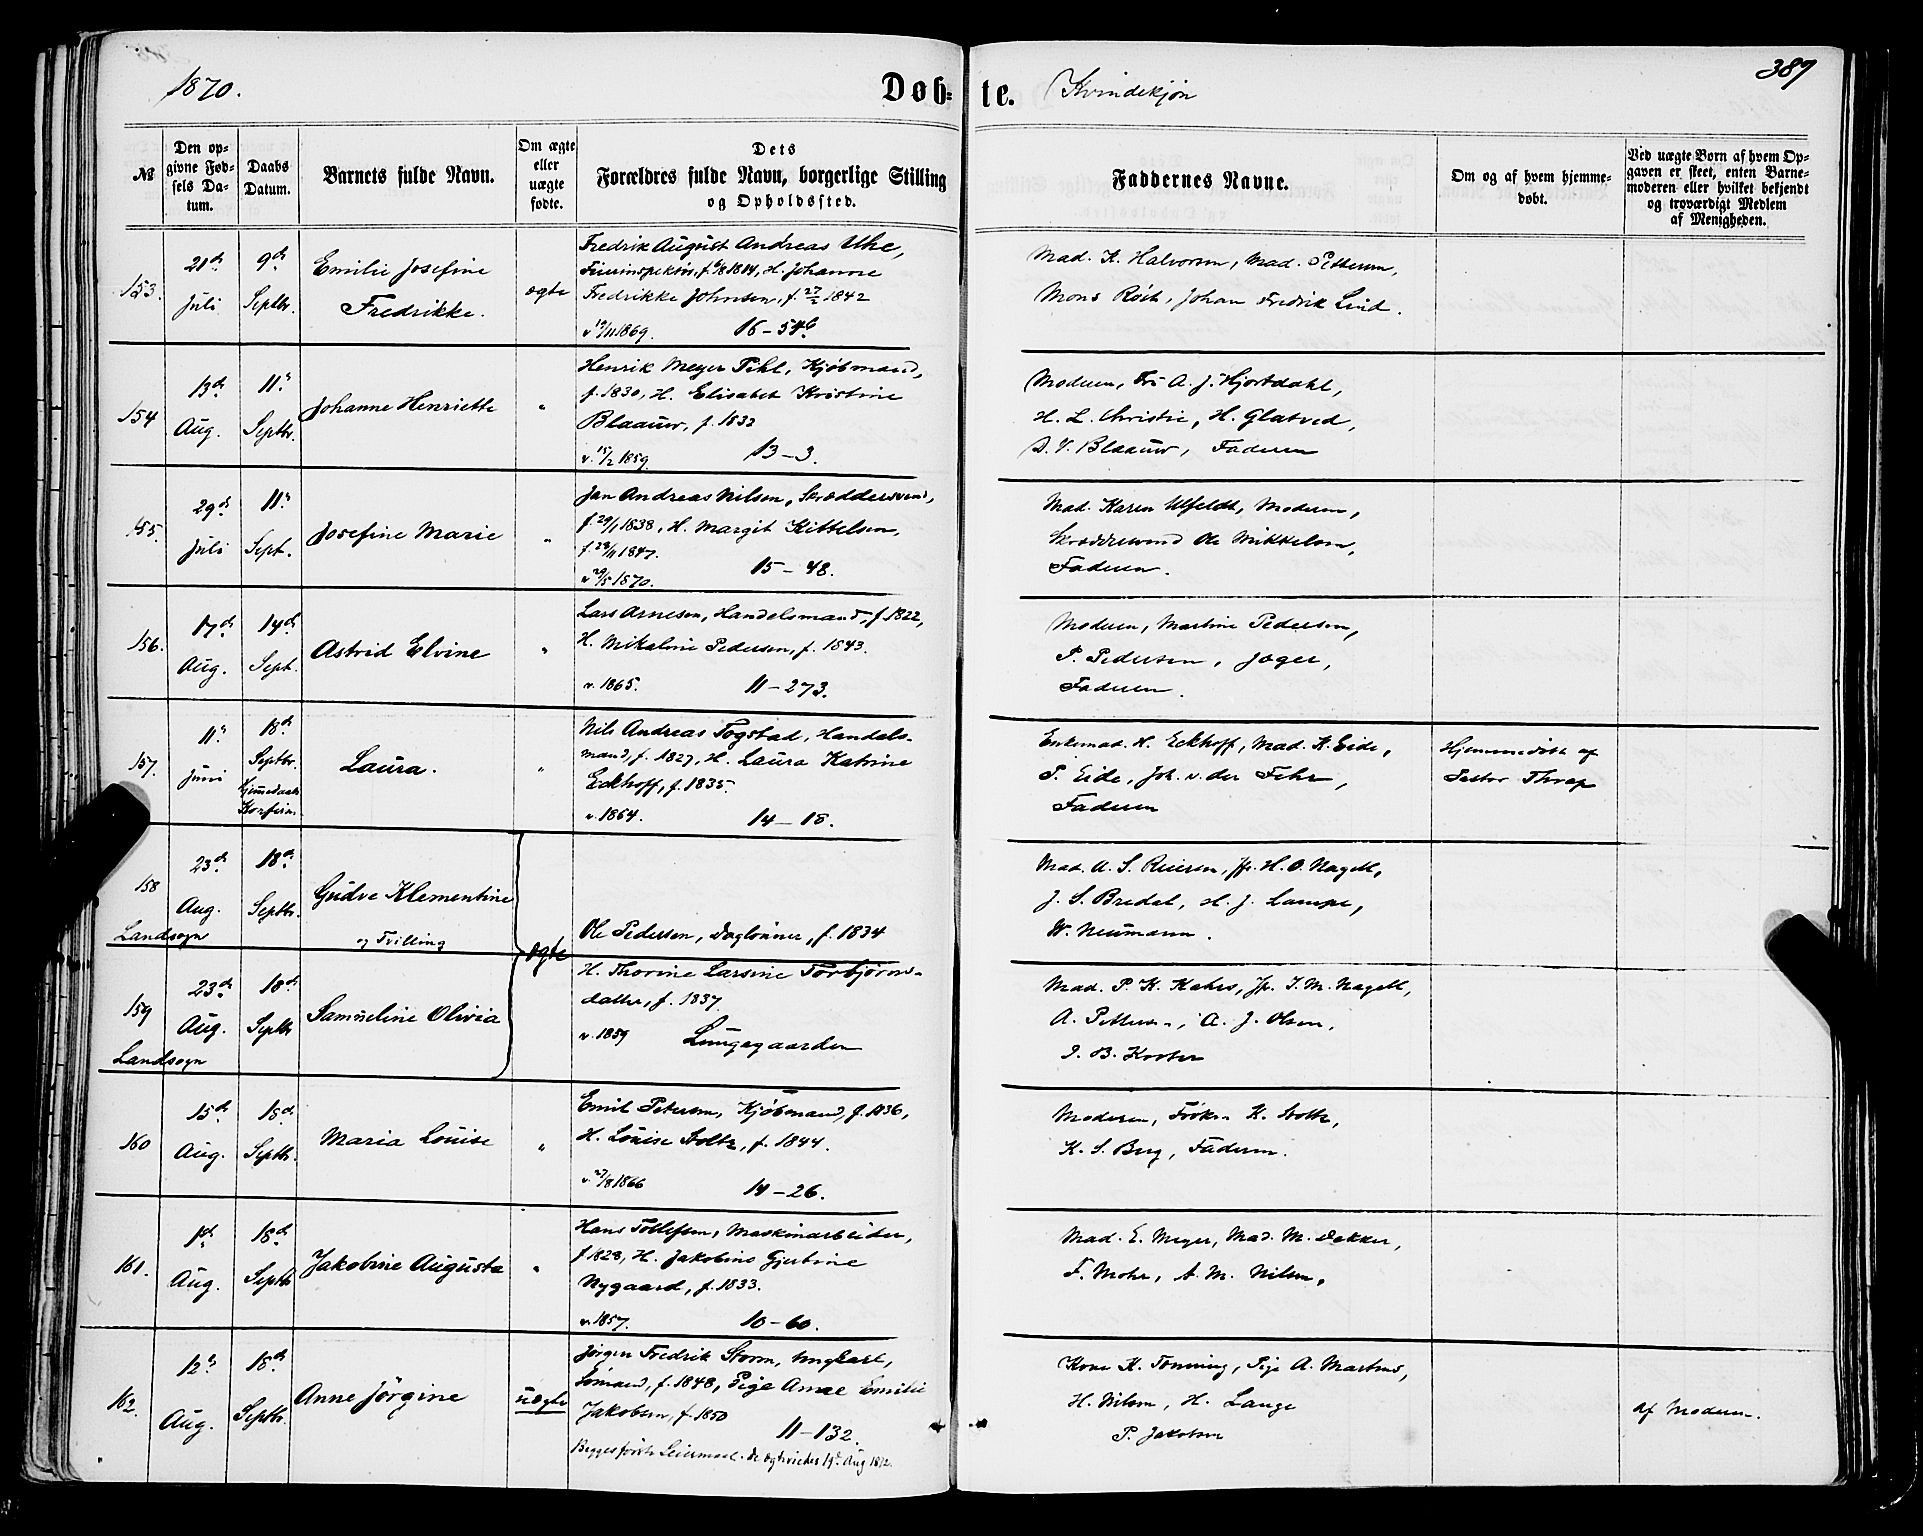 1870.
Døb-
te.
Kvindekjøn
387
№
Den op-
givne Fød-
sels Da-
tum.
Daabs
Datum.
Barnets fulde Navn.
Om ægte
eller
uægte
fødte.
Dets
Forældres fulde Navn, borgerlige Stilling
og Opholdssted.
Faddernes Navne.
Om og af hvem hjemme-
døbt.
Ved uægte Børn af hvem Op-
gaven er skeet, enten Barne-
moderen eller hvilket bekjendt
og troværdigt Medlem
af Menigheden.
153.
21de
Juli
9de
Septbr.
Emilie Josefine
Fredrikke.
ægte
Fredrik August Andreas Uhe,
f. 6/8 1814, H. Johanne
Fredrikke Johnsen, f. 27/2 1842
v 19/11 1869. 16-546
Mad. K. Halvorsen, Mad. Pettersen,
Mons Röst, Johan Fredrik Lind.
154
13de
Aug.
11te
Septbr.
Johanne Henriette
"
Henrik Meyer Pihl, Kjøbmand,
f. 1830, H. Elisabet Kristine
Blaauw, f. 1833
v. 15/2 1859. 13-3.
Moderen, Fru A. J. Hjortdahl,
H. L. Christie, H. Glatved,
Blaauw, Faderen
155.
29de
Juli
11te
Sept.
Josefine Marie
"
Jan Andreas Nilsen, Skræddersvend,
f. 29/1 1838, H. Margit Kittelsen,
f. 28/11 1847.
v 29/5 1870. 15-48.
Mad. Karen Ulfeldt, Moderen,
Skræddersvend Ole Mikkelsen,
Faderen.
156.
17de
Aug.
14de
Sept.
Astrid Elvine
"
Lars Arnesen, Handelsmand, f. 1822,
H. Mikaline Pedersen, f. 1843.
v. 1865. 11-273.
Moderen, Martine Pedersen,
P. Pedersen, Jæger,
Faderen.
157.
11te
Juni
18de
Septbr.
Hjemmedaab
Konfirm.
Laura.
"
Nils Andreas Togstad, Handels-
mand, f. 1827, H. Laura Katrine
Eckhoff, f. 1835.
v. 1864. 14-18.
Enkemad. H. Eckhoff, Mad. K. Eide,
P. Eide, Joh. v. der Fehr,
Faderen
Hjemmedøbt af
Pastor Thrap
158
Landsogn
23de
Aug.
18de
Septbr.
Gudve Klementine
og Tvilling
ægte
Ole Pedersen, Daglønner, f. 1834
H. Thorine Larsine Torbjørns-
datter, f. 1837
v. 1859 Lungegaarden
Mad. A. S. Riiersen, Jfr. H. O. Nagell,
J. S. Bredal, H. J. Lampe,
W. Neumann.
159
Landsogn
23de
Aug.
18de
Septbr
Samueline Olivia
Mad. P. K. Kahrs, Jfr. I. M. Nagell,
A. Pettersen, A. J. Olsen,
I. B. Koster
160
15de
Aug.
18de
Septbr.
Maria Louise
"
Emil Petersen, Kjøbmand, f. 1836,
H. Louise Stoltz, f. 1844.
v. 27/8 1866 14-26.
Moderen, Frøkn K. Stoltz,
K. S. Berg, Faderen.
161.
1ste
Aug.
18de
Septbr
Jakobine Augusta
"
Hans Tollefsen, Maskinarbeider,
f. 1828, H. Jakobine Gjertine
Nygaard, f. 1833.
v. 1857. 10-60.
Mad. E. Meyer, Mad. M. Dekker,
F. Mohr, A. M. Nilsen,
162.
12te
Aug.
18de
Septbr.
Anne Jörgine
uægte
Jørgen Fredrik Storm, Ungkarl,
Sømand, f. 1848, Pige Anne Emilie
Jakobsen, f. 1850
11-132.
Begges første Leiermaal. De ægteviedes 19de Aug 1872.
Kone K. Tönning, Pige A. Martens,
H. Nilsen, H. Lange
P. Jakobsen
af Moderen.